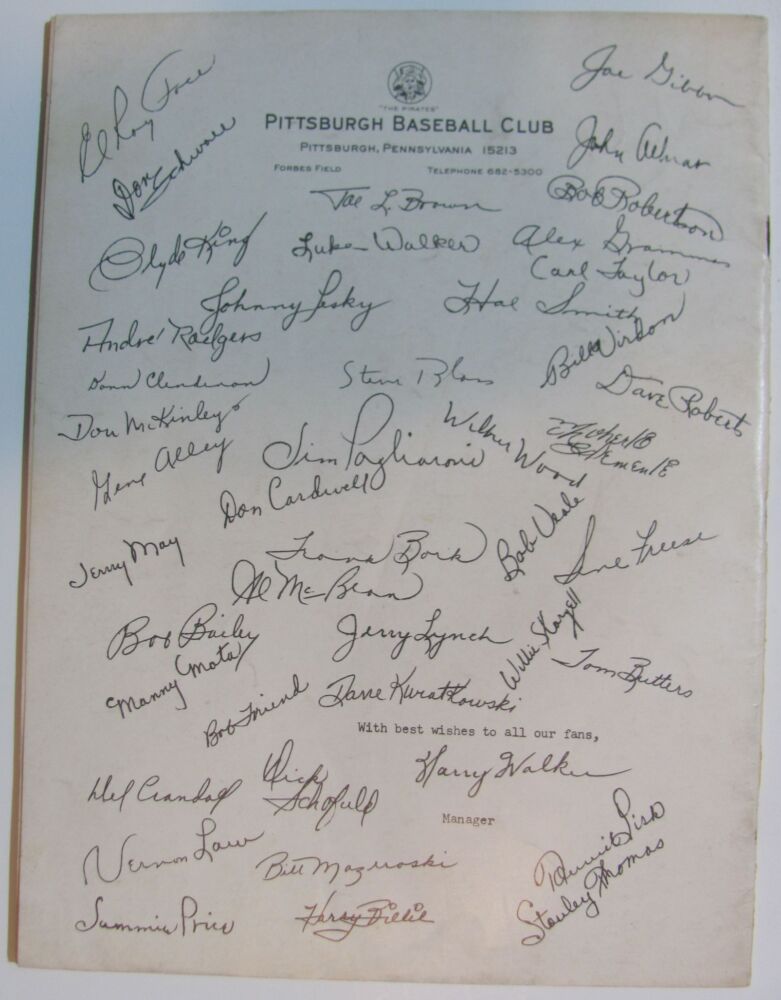 Joe Gibbon
El Roy Face
"THE PIRATES"
PITTSBURGH BASEBALL CLUB
PITTSBURGH, PENNSYLVANIA 15213
FORBES FIELD TELEPHONE 682-5300
Don Schwall
John Gelnar
Joe L. Brown
Bob Robertson
Clyde King
Luke Walker
Alex Grammas
Carl Taylor
Johnny Pesky
Hal Smith
André Rodgers
Bill Virdon
Donn Clendenon
Steve Blass
Dave Roberts
Don McKinley
Wilbur Wood
Roberto
Clemente
Gene Alley
Jim Pagliaroni
Don Cardwell
Bob Veale
Jerry May
Frank Bork
Gene Freese
Al McBean
Bob Bailey
Jerry Lynch
Willie Stargell
Manny Mota
Tom Butters
Bob Friend
Dave Kwiatkowski
With best wishes to all our fans,
Del Crandall
Dick
Schofield
Harry Walker
Manager
Vernon Law
Bill Mazeroski
Stanley Thomas
Sammie Price